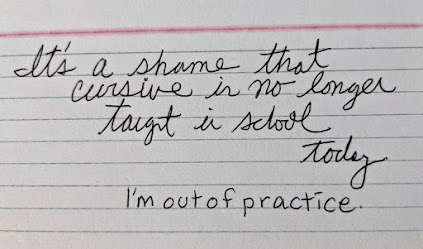 It's a shame that
cursive is no longer
taugt in school
today
I'm out of practice.